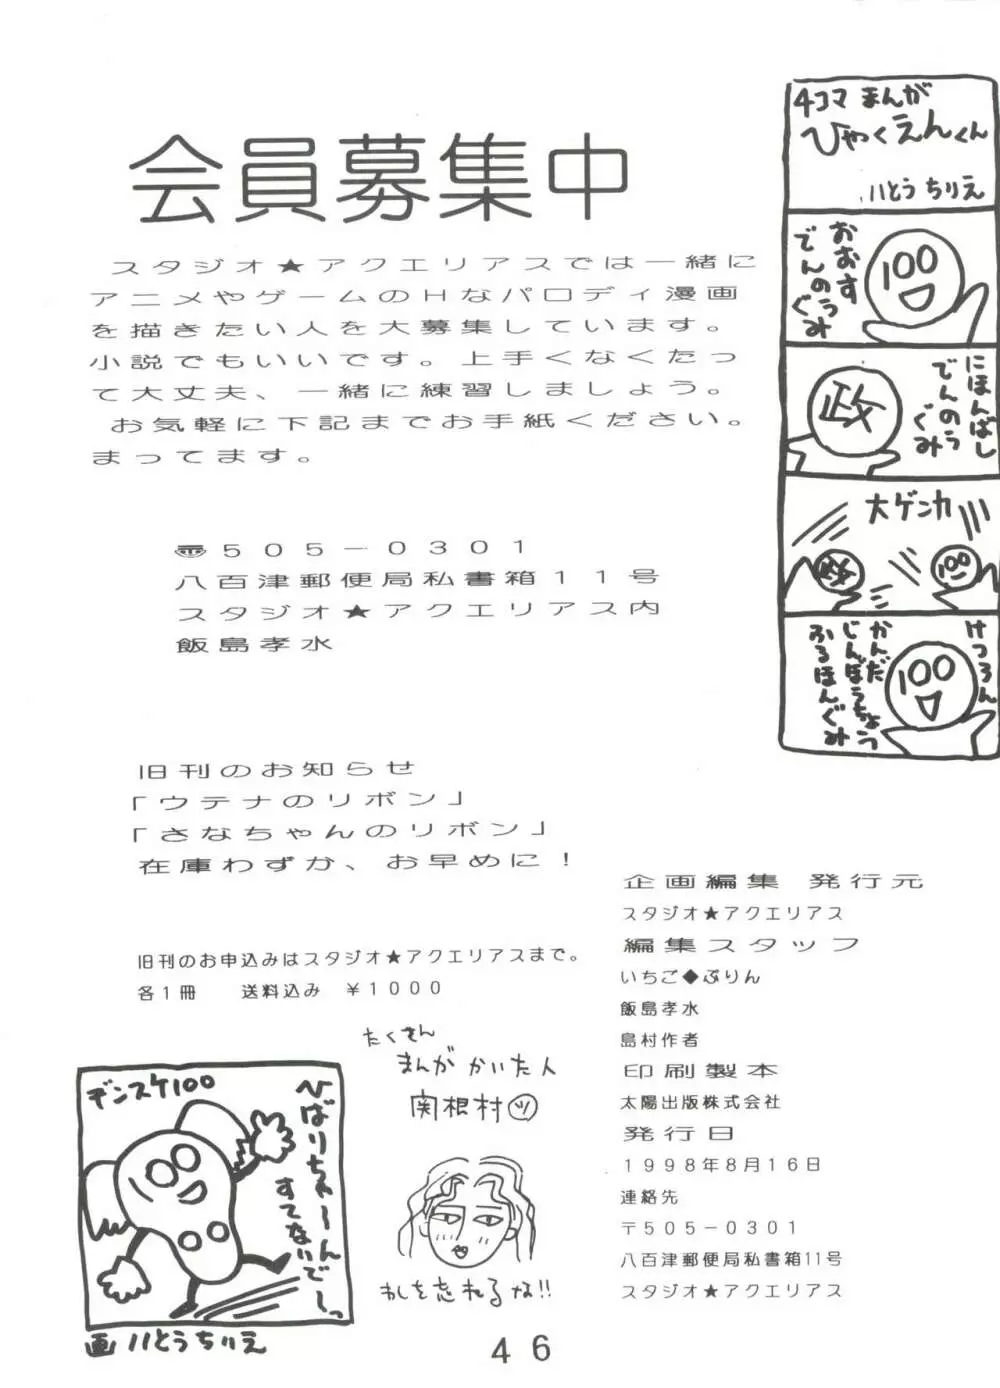 会員募集中
スタジオ★アクエリアスでは一緒に
アニメやゲームのHなパロディ漫画
を描きたい人を大募集しています。
小説でもいいです。上手くなくたっ
て大丈夫、一緒に練習しましょう。
お気軽に下記までお手紙ください。
まってます。
〠505－0301
八百津郵便局私書箱11号
スタジオ★アクエリアス内
飯島孝水
旧刊のお知らせ
「ウテナのリボン」
「さなちゃんのリボン」
在庫わずか、お早めに！
旧刊のお申込みはスタジオ★アクエリアスまで。
各1冊　送料込み　￥1000
4コマ まんが
ひゃくえんくん
いとうちりえ
おおす
でんのうみ
ぐみ
100
にほんばし
でんのう
ぐみ
政
大ゲンカ
政
100
けつろん
かんだ
じんぼうちょう
ふるほんぐみ
100
企画編集　発行元
スタジオ★アクエリアス
編集スタッフ
いちご◆ぷりん
飯島孝水
島村作者
印刷製本
太陽出版株式会社
発行日
1998年8月16日
連絡先
〒505－0301
八百津郵便局私書箱11号
スタジオ★アクエリアス
たくさん
まんが かいた人
関根村ツ
わしを忘れるな!!
デンスケ100
ひばりちゃーん
すてないでーっ
画 いとうちりえ
46